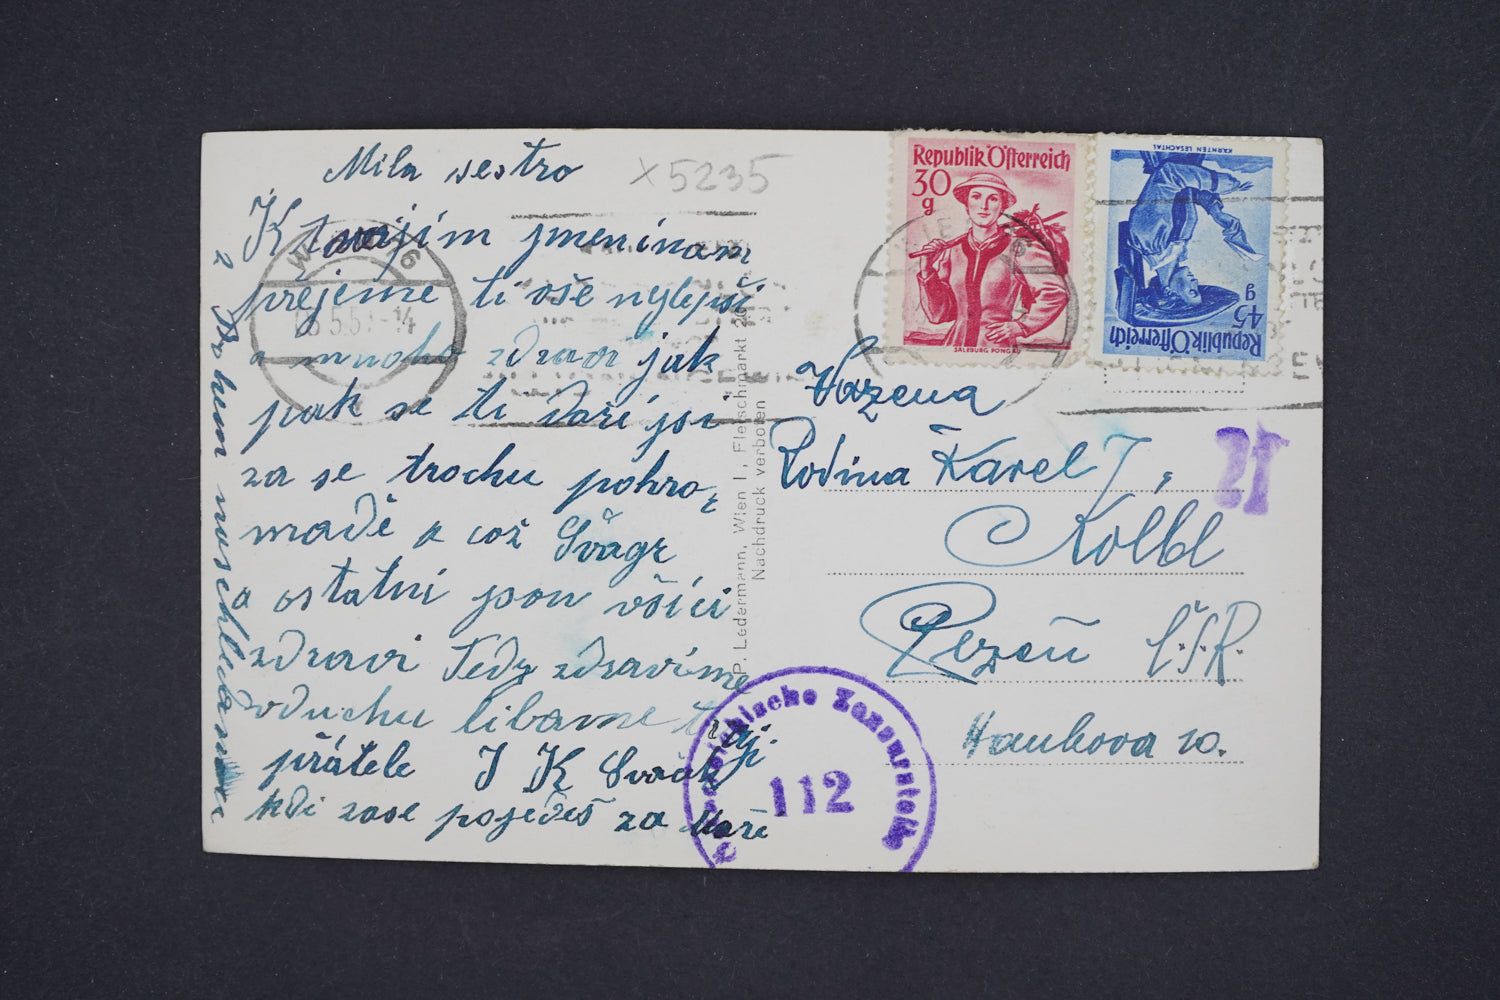 Mila sestro
X5235
K tvojim jmeninam
přejeme ti vše nylepší
a mnoho zdraví jak
pak se ti daří jsi
za se trochu pohro-
madě a což Švagr
a ostatní jsou všici
zdraví Tedy zdravíme
vduchu libame tvoji
přátele J K
kdi zase pojedeš za
z Bohem
Republik Österreich
30
g
SALZBURG PONGAU
KÄRNTEN LESACHTAL
45
g
Republik Österreich
WIEN
16
P. Ledermann, Wien I., Fleischmarkt 20
Nachdruck verboten
Vazena
Rodina Karel J,
Kolbl
Plzeň Č.S.R.
Haukova 10.
21
Österreichische Zensurstelle
112